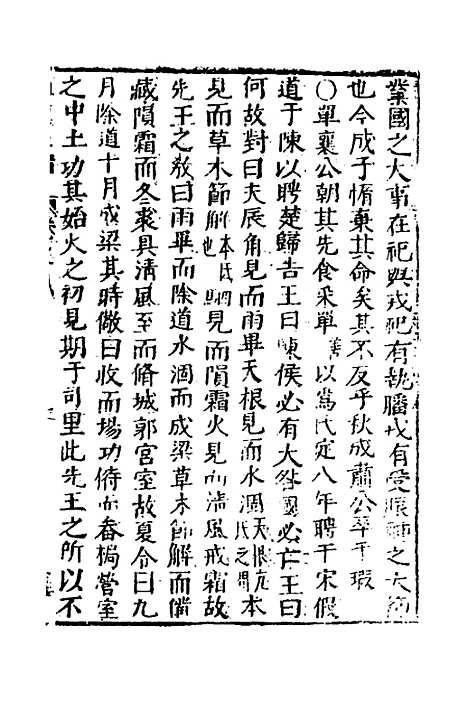 業國之大事在祀與戎祀有執膰戎有受脤神之大節
也今成子惰棄其命矣其不反乎秋成肅公卒于瑕
○單襄公朝其先食采單以為氏定八年聘于宋假
道于陳以聘楚歸告王曰陳侯必有大咎國必亡王曰
何故對曰夫辰角見而雨畢天根見而水涸天根亢氐之間本
見而草木節解本氐也駟見而隕霜火見而清風戒霜故
先王之教曰雨畢而除道水涸而成梁草木節解而備
藏隕霜而冬裘具清風至而脩城郭宮室故夏令曰九
月除道十月成梁其時儆曰收而場功偫而畚梮營室
之中土功其始火之初見期于司里此先王之所以不